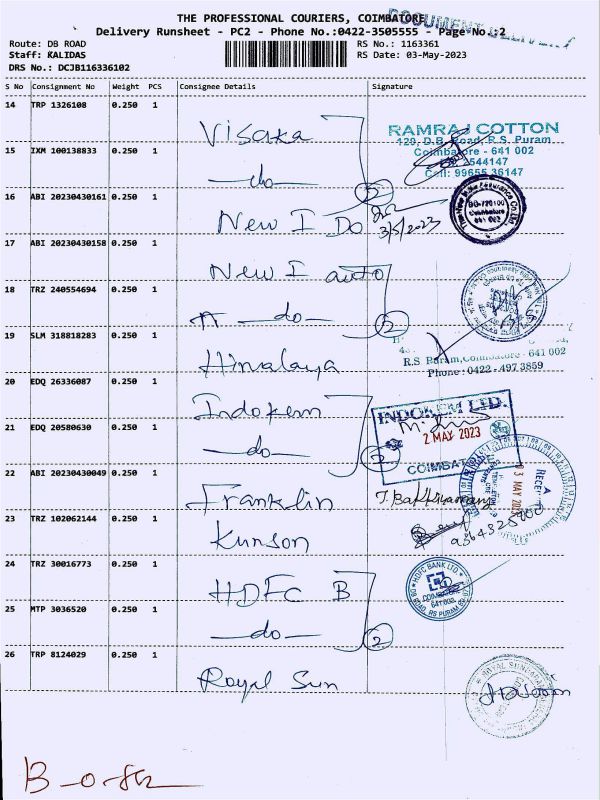 THE PROFESSIONAL COURIERS, COIMBATORE
Delivery Runsheet - PC2 - Phone No.:0422-3505555 - Page No.:2
Route: DB ROAD
RS No.: 1163361
Staff: KALIDAS
RS Date: 03-May-2023
DRS No.: DCJB116336102
S No Consignment No Weight PCS Consignee Details Signature
14 TRP 1326108 0.250 1
Visaka
RAMRAJ COTTON
129, D.B. Road, R.S. Puram,
15 IXM 100138833 0.250 1
Coimbatore - 641 002
544147
Cell: 99655 36147
-do-
2
16 ABI 20230430161 0.250 1
New I Do
3/5/2023
BO-720100
Coimbatore
641 002
17 ABI 20230430158 0.250 1
New I auto
18 TRZ 240554694 0.250 1
-do-
2
19 SLM 318818283 0.250 1
Himalaya
R.S. Puram, Coimbatore - 641 002
Phone: 0422 - 497 3859
20 EDQ 26336087 0.250 1
Indokem
INDOKEM LTD.
2 MAY 2023
21 EDQ 20580630 0.250 1
-do-
2
COIMBAT
22 ABI 20230430049 0.250 1
Franklin
03 MAY 202
23 TRZ 102062144 0.250 1
Kunson
24 TRZ 30016773 0.250 1
HDFC B
HDFC BANK LTD.
COIMBATORE
641 002
25 MTP 3036520 0.250 1
-do-
2
26 TRP 8124029 0.250 1
Royal Sun